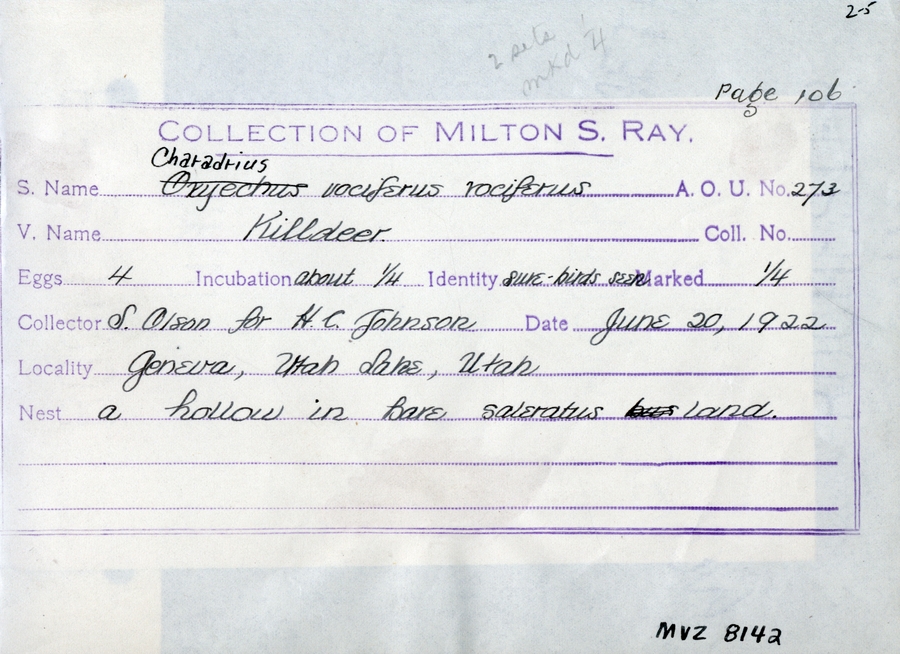 2-5
2 sets
mkd 1/4
Page 106
COLLECTION OF MILTON S. RAY.
Charadrius
S. Name Oxyechus vociferus vociferus A. O. U. No. 273
V. Name Killdeer. Coll. No.
Eggs 4 Incubation about 1/4 Identity sure-birds seen Marked 1/4
Collector S. Olson for H. C. Johnson Date June 20, 1922
Locality Geneva, Utah Lake, Utah
Nest a hollow in bare saleratus land.
MVZ 8142